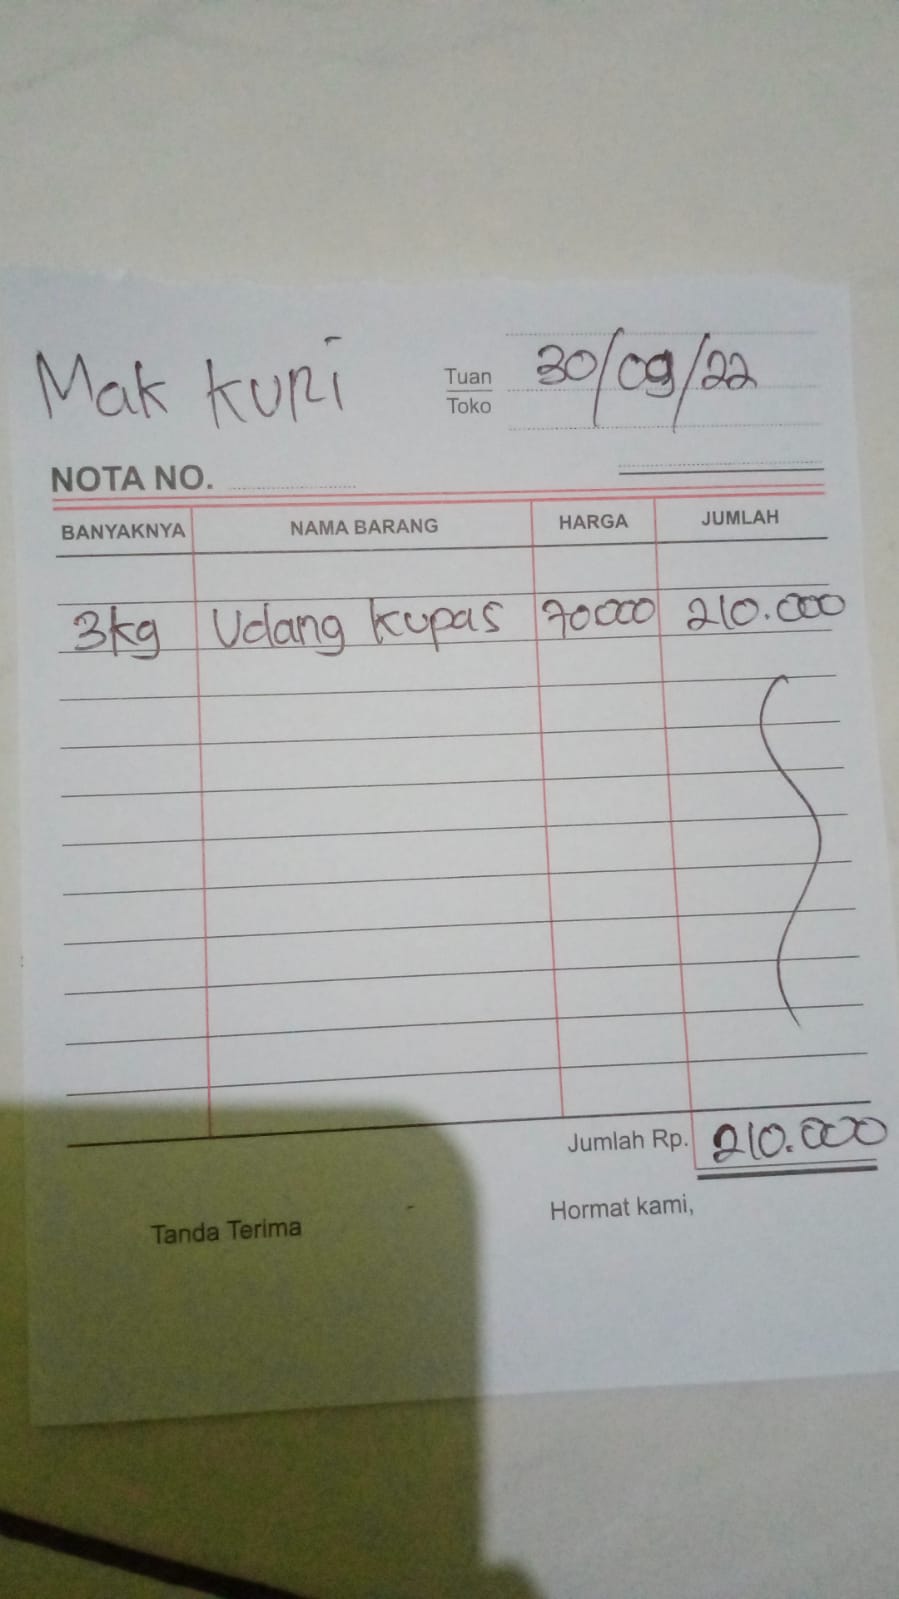 Mak kuri
Tuan
Toko
30/09/22
NOTA NO.
BANYAKNYA NAMA BARANG HARGA JUMLAH
3kg Udang kupas 70000 210.000
Jumlah Rp. 210.000
Tanda Terima
Hormat kami,